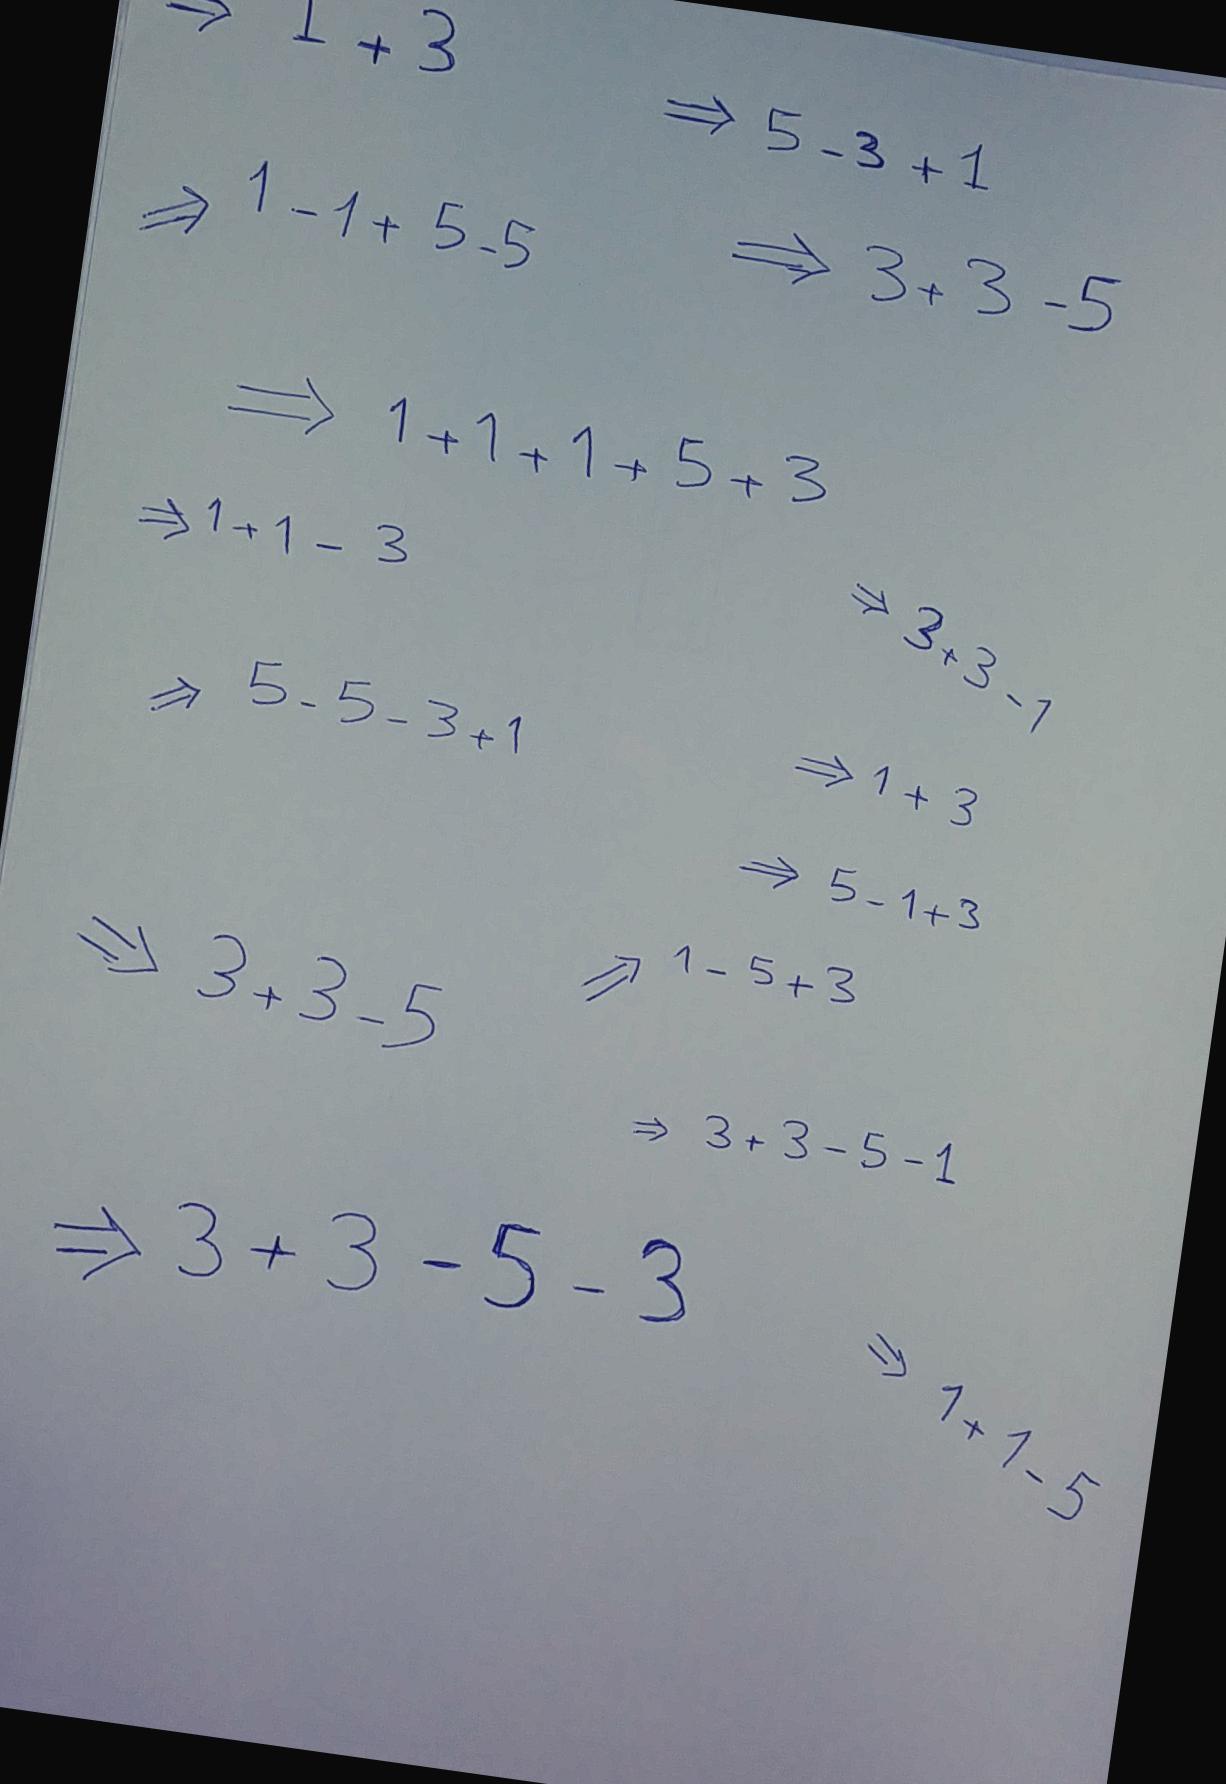 ⇒ 1 + 3
⇒ 5 - 3 + 1
⇒ 1 - 1 + 5 - 5
⇒ 3 + 3 - 5
⇒ 1 + 1 + 1 + 5 + 3
⇒ 1 + 1 - 3
⇒ 3 + 3 - 1
⇒ 5 - 5 - 3 + 1
⇒ 1 + 3
⇒ 5 - 1 + 3
⇒ 3 + 3 - 5
⇒ 1 - 5 + 3
⇒ 3 + 3 - 5 - 1
⇒ 3 + 3 - 5 - 3
⇒ 1 + 1 - 5